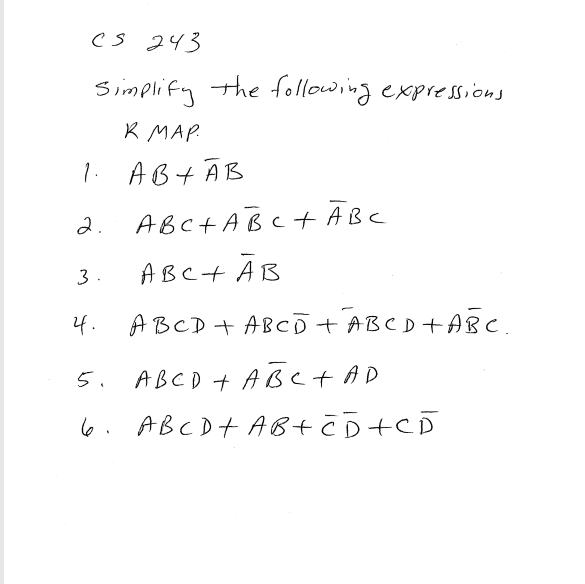 CS 243
Simplify the following expressions
K MAP.
1. AB + A̅B
2. ABC + AB̅C + A̅BC
3. ABC + A̅B
4. ABCD + ABCD̅ + A̅BCD + AB̅C.
5. ABCD + AB̅C + AD
6. ABCD + AB + C̅D̅ + CD̅